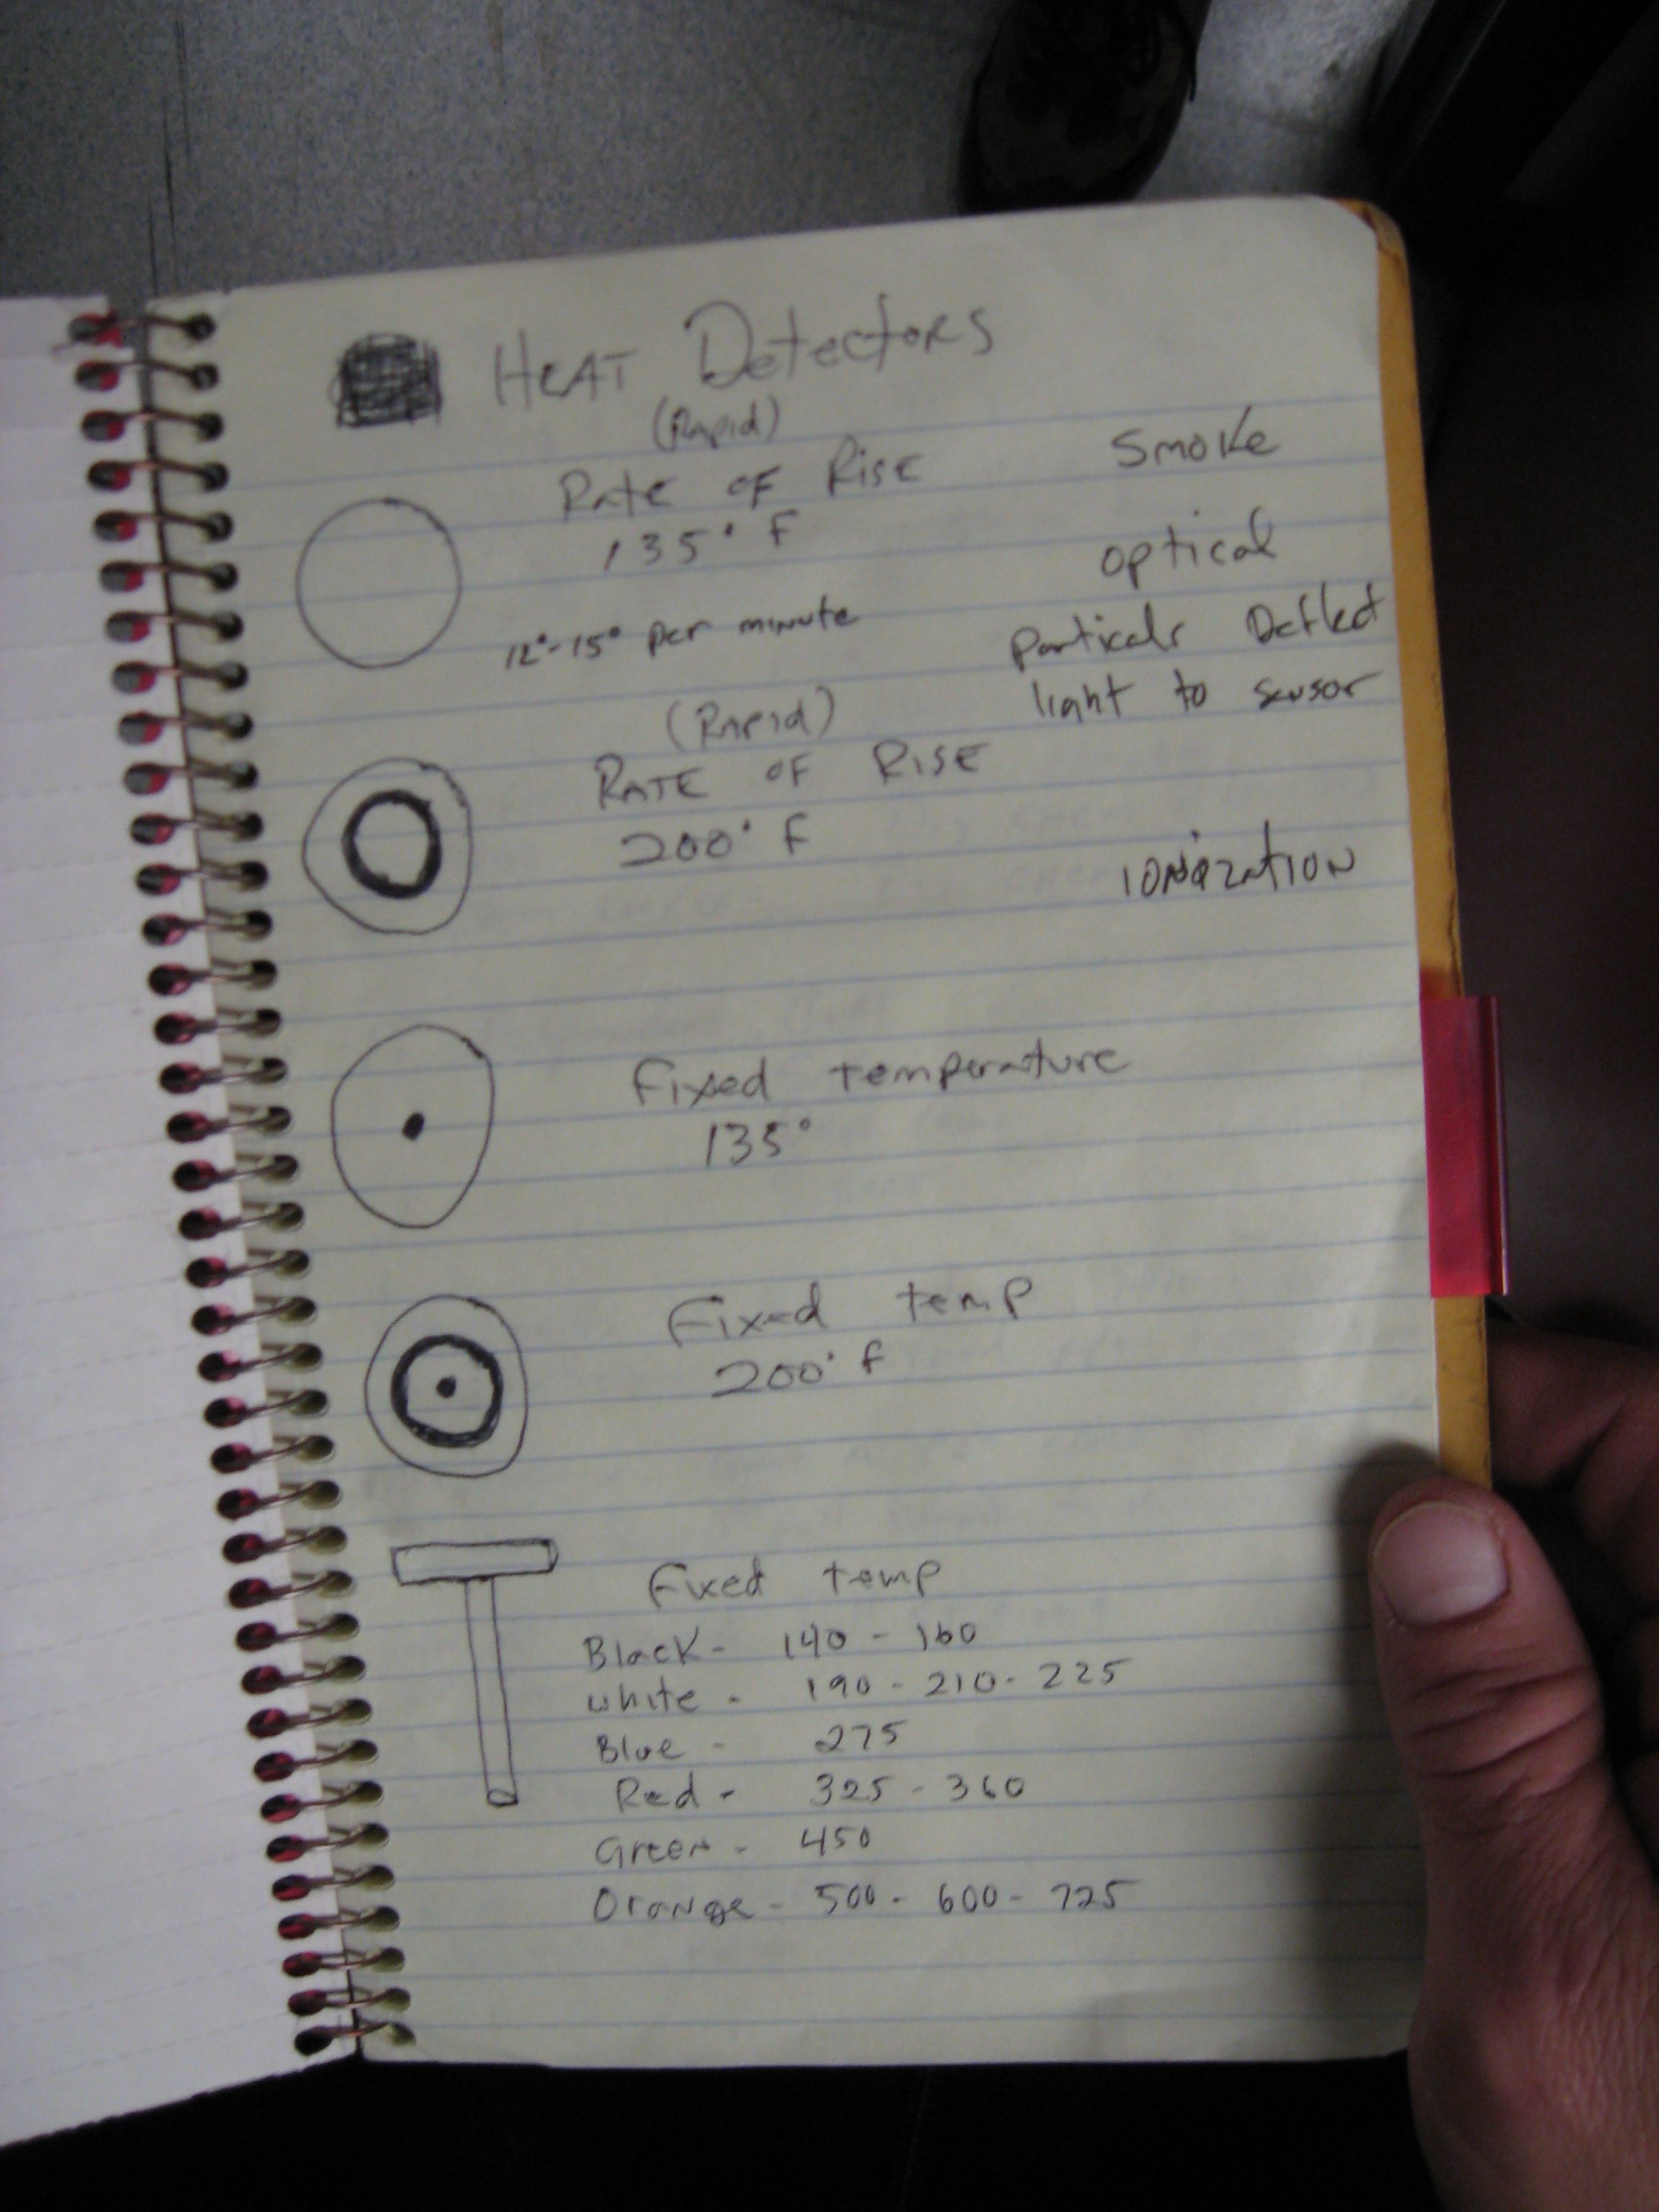 HEAT Detectors
(Rapid)
Rate OF RisE
135° F
12°-15° per minute
(Rapid)
RATE OF RISE
200° F
Smoke
optical
Particals Deflect
light to sensor
IONIZATION
Fixed temperature
135°
Fixed temp
200° F
Fixed temp
Black - 140 - 160
White - 190 - 210 - 225
Blue - 275
Red - 325 - 360
Green - 450
Orange - 500 - 600 - 725